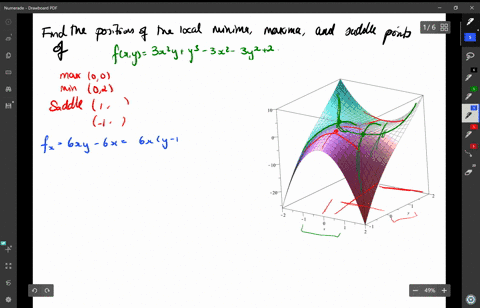 Numerade - Drawboard PDF
Find the positions of the local minima, maxima, and saddle points
of
f(x,y) = 3x²y + y³ - 3x² - 3y² + 2
1 / 6
max (0,0)
min (0,2)
Saddle (1, )
(-1, )
f_x = 6xy - 6x = 6x(y-1
10
0
-10
-20
-2
-1
0
1
2
x
-1
1
2
49%